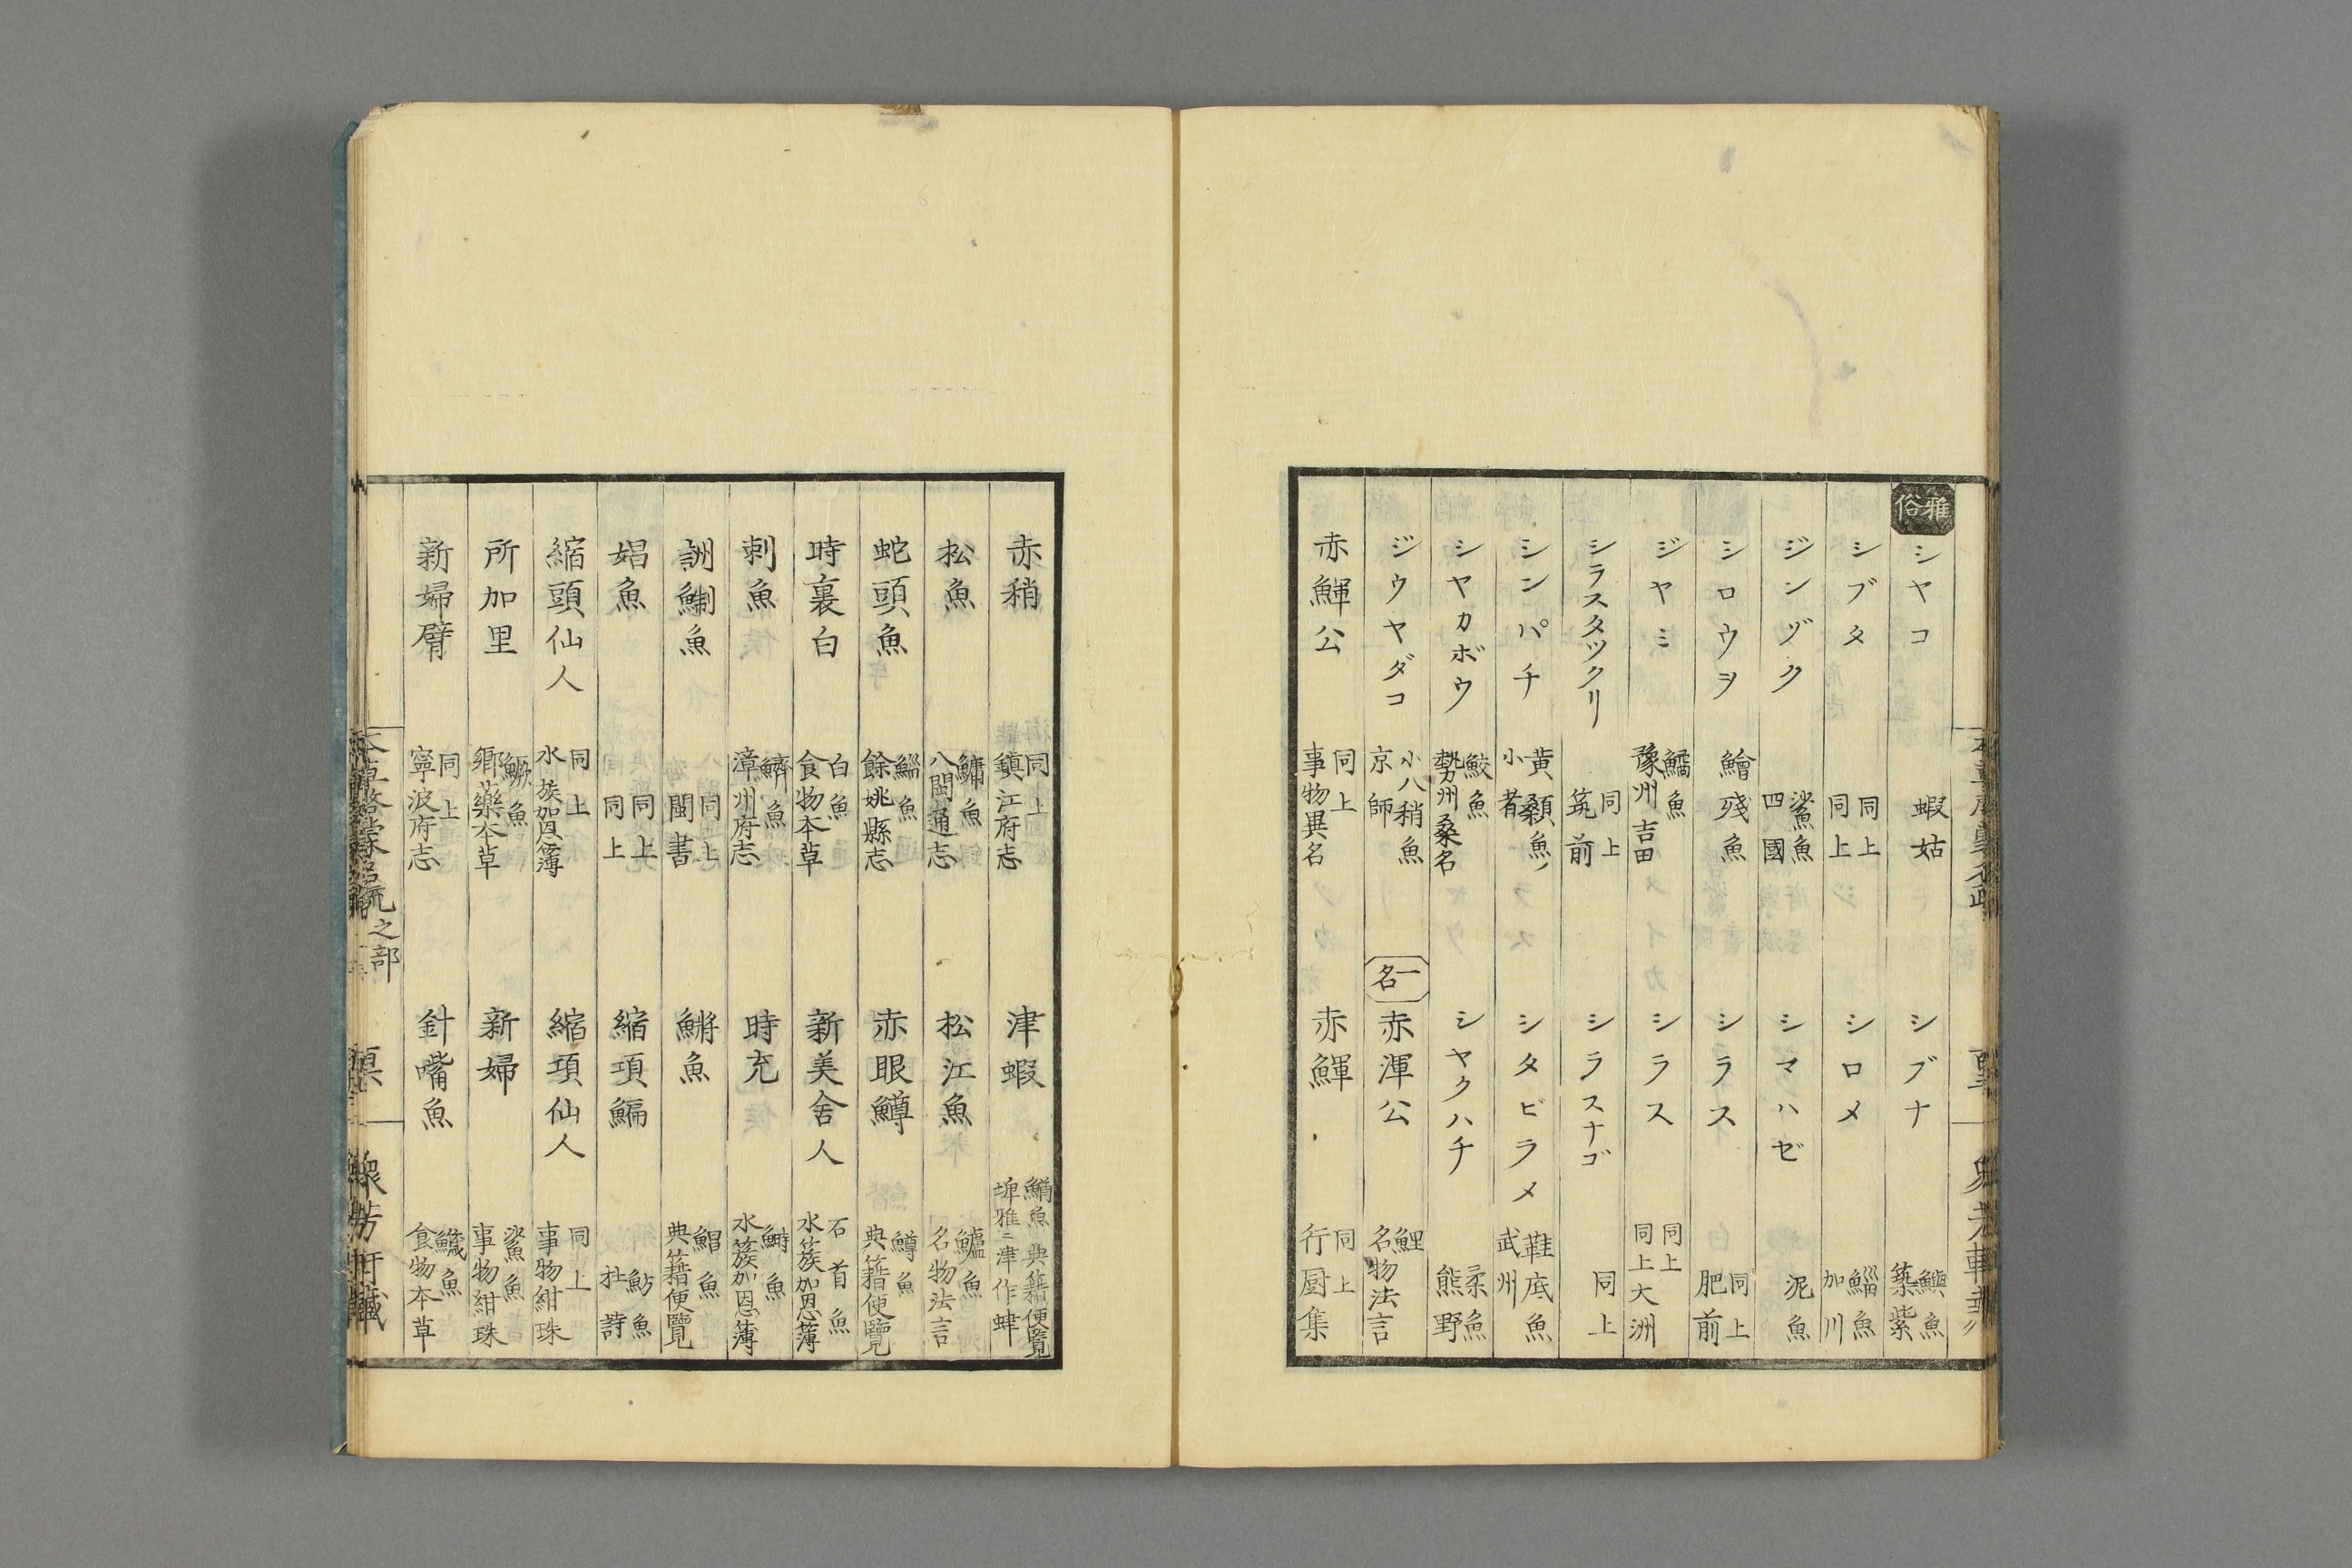 雅俗
シヤコ 蝦姑
シブナ 鱮魚 築紫
シブタ 同上 同上
シロメ 鯔魚 加川
ジンヅク 鯊魚 四國
シマハゼ 泥魚
シロウヲ 鱠殘魚
シラス 同上 肥前
ジヤミ 鱊魚 豫州吉田
シラス 同上 同上大洲
シラスタツクリ 同上 筑前
シラスナゴ 同上
シンパチ 黄顙魚ノ小者
シタビラメ 鞋底魚 武州
シヤカボウ 鮫魚 勢州桑名
シヤクハチ 柔魚 熊野
ジウヤダコ 小八稍魚 京師
一名
赤渾公 鯉 名物法言
赤鯶公 同上 事物異名
赤鯶 同上 行厨集
赤稍 同上 鎮江府志
津蝦 魚 典籍便覽 埤雅ニ津作蜯
松魚 鱅魚 八閩通志
松江魚 鱸魚 名物法言
蛇頭魚 鯔魚 餘姚縣志
赤眼鱒 鱒魚 典籍便覽
時裏白 白魚 食物本草
新美舍人 石首魚 水簇加恩簿
刺魚 鱭魚 漳州府志
時充 鰣魚 水簇加恩簿
魚 同上 閩書
鱂魚 鯧魚 典籍便覽
娼魚 同上 同上
縮項鯿 魴魚 杜詩
縮頭仙人 同上 水族加恩簿
縮項仙人 同上 事物紺珠
所加里 鱖魚 鄉藥本草
新婦 鯊魚 事物紺珠
新婦臂 同上 寧波府志
針嘴魚 鱵魚 食物本草
本草啓蒙名疏 之部
衆芳軒藏